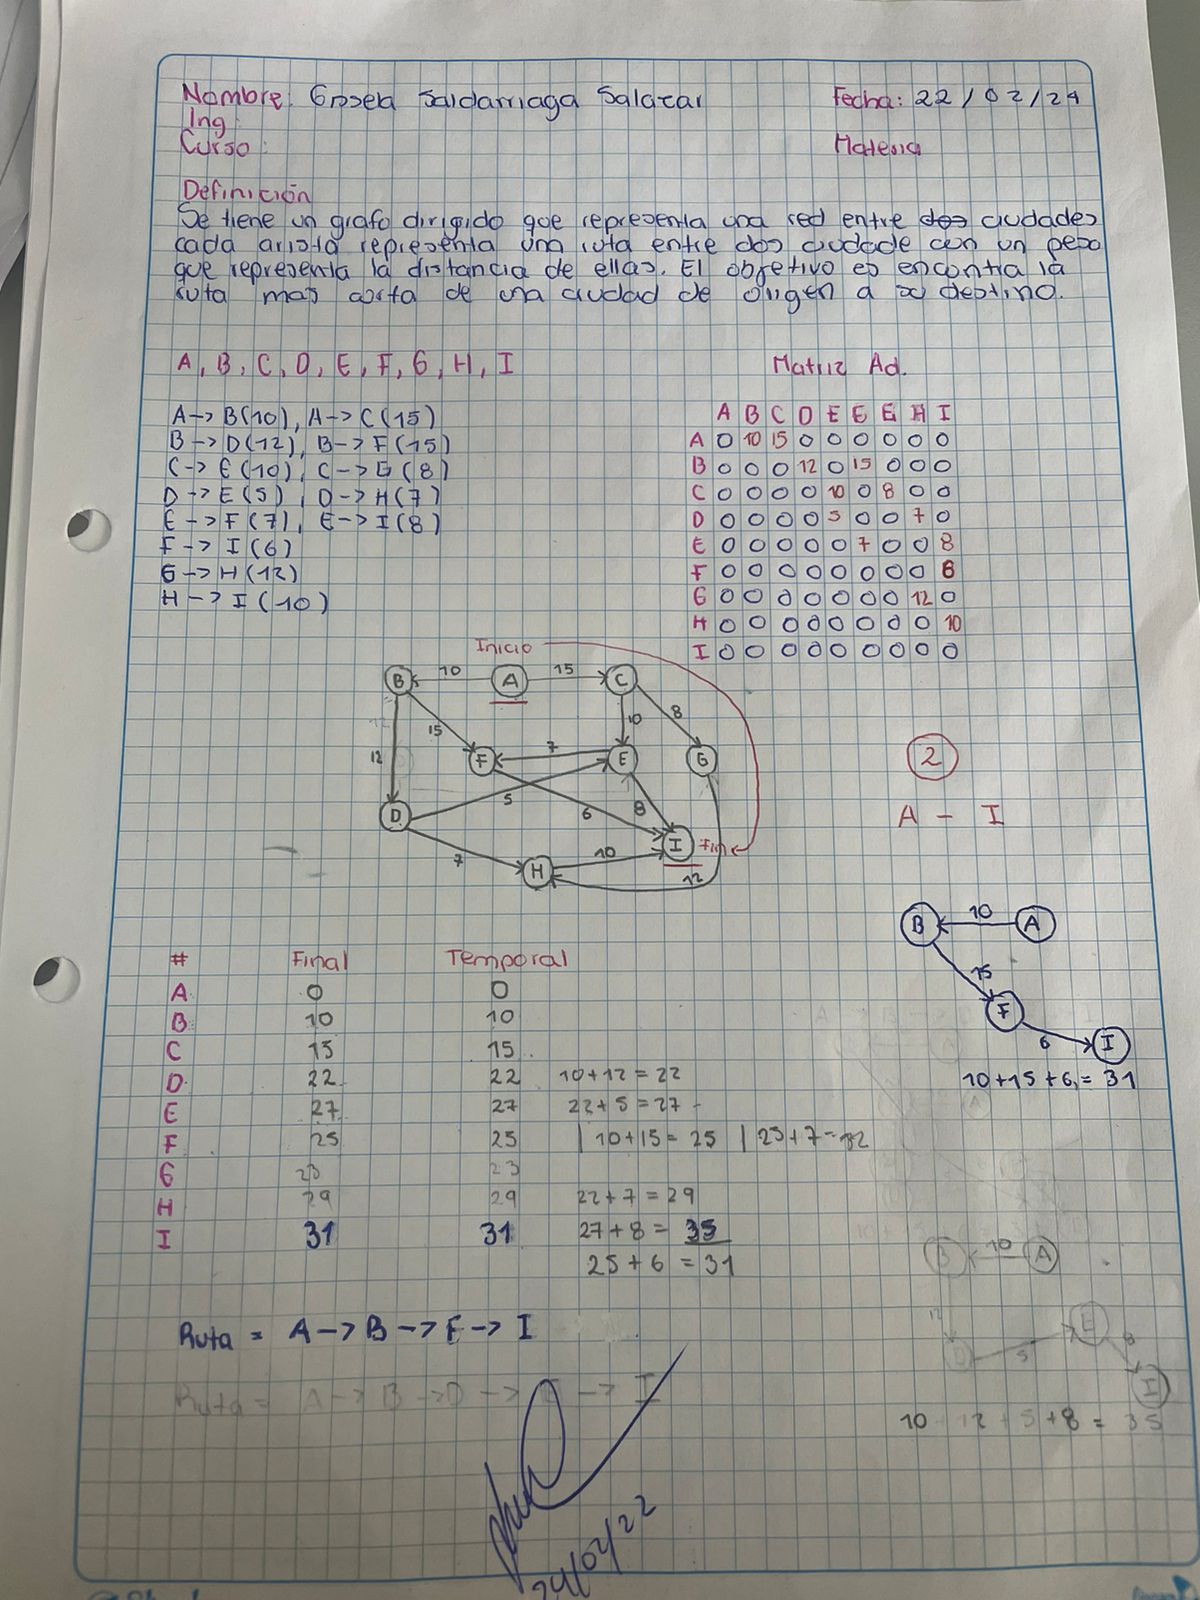 Nombre: Grisela Saldarriaga Salazar
Fecha: 22/02/24
Ing:
Curso:
Materia
Definición
Se tiene un grafo dirigido que representa una red entre dos ciudades
cada arista representa una ruta entre dos ciudade con un peso
que representa la distancia de ellas. El objetivo es encontra la
ruta mas corta de una ciudad de origen a su destino.
A, B, C, D, E, F, G, H, I
Matriz Ad.
A -> B(10), A -> C(15)
B -> D(12), B -> F(15)
C -> E(10), C -> G(8)
D -> E(5), D -> H(7)
E -> F(7), E -> I(8)
F -> I(6)
G -> H(12)
H -> I(10)
A B C D E E E H I
A 0 10 15 0 0 0 0 0 0
B 0 0 0 12 0 15 0 0 0
C 0 0 0 0 10 0 8 0 0
D 0 0 0 0 5 0 0 7 0
E 0 0 0 0 0 7 0 0 8
F 0 0 0 0 0 0 0 0 6
G 0 0 0 0 0 0 0 12 0
H 0 0 0 0 0 0 0 0 10
I 0 0 0 0 0 0 0 0 0
Inicio
B 10 A 15 C
15 10 8
12 F 7 E G
D 5 6 8
I Fin
7 H 10 12
2
A - I
B 10 A
15
F
6 I
10+15+6,= 31
# Final Temporal
A 0 0
B 10 10
C 15 15
D 22 22 10+12=22
E 27 27 22+5=27
F 25 25 | 10+15=25 | 25+7=32
G 23 23
H 29 29 22+7=29
I 31 31 27+8=35
25+6=31
B 10 A
12 D 5 E 8 I
Ruta = A -> B -> F -> I
Ruta = A -> B -> D -> E -> I
10+12+5+8=35
24/02/22